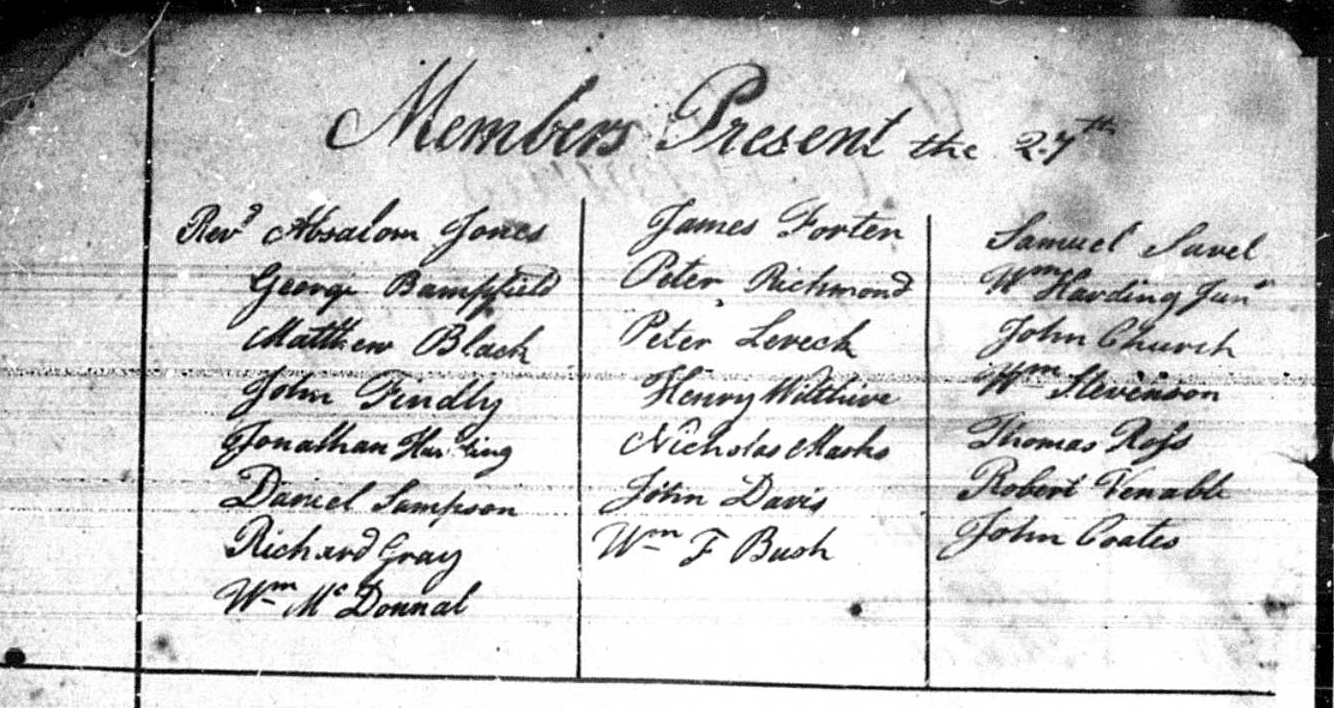 Members Present the 27th
Revd Absalom Jones
George Bampfield
Matthew Black
John Findly
Jonathan Harding
Daniel Sampson
Richard Gray
Wm McDonnal
James Forten
Peter Richmond
Peter Leveck
Henry Wilthire
Nicholas Marks
John Davis
Wm F Bush
Samuel Savel
Wm Harding Junr
John Church
Wm Stevenson
Thomas Ross
Robert Venable
John Coates